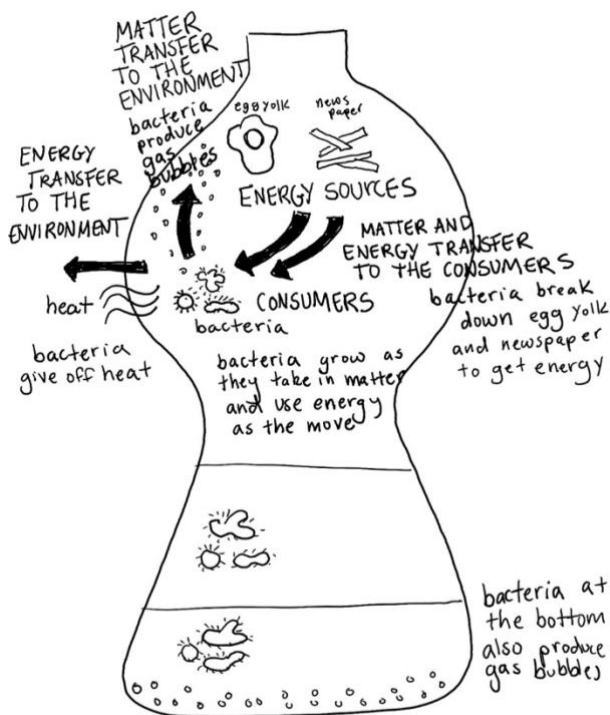 MATTER
TRANSFER
TO THE
ENVIRONMENT
bacteria
produce
gas
bubbles
egg yolk
news
paper
ENERGY SOURCES
ENERGY
TRANSFER
TO THE
ENVIRONMENT
MATTER AND
ENERGY TRANSFER
TO THE CONSUMERS
bacteria break
down egg yolk
and newspaper
to get energy
heat
bacteria
give off heat
CONSUMERS
bacteria
bacteria grow as
they take in matter
and use energy
as the move
bacteria at
the bottom
also produce
gas bubbles